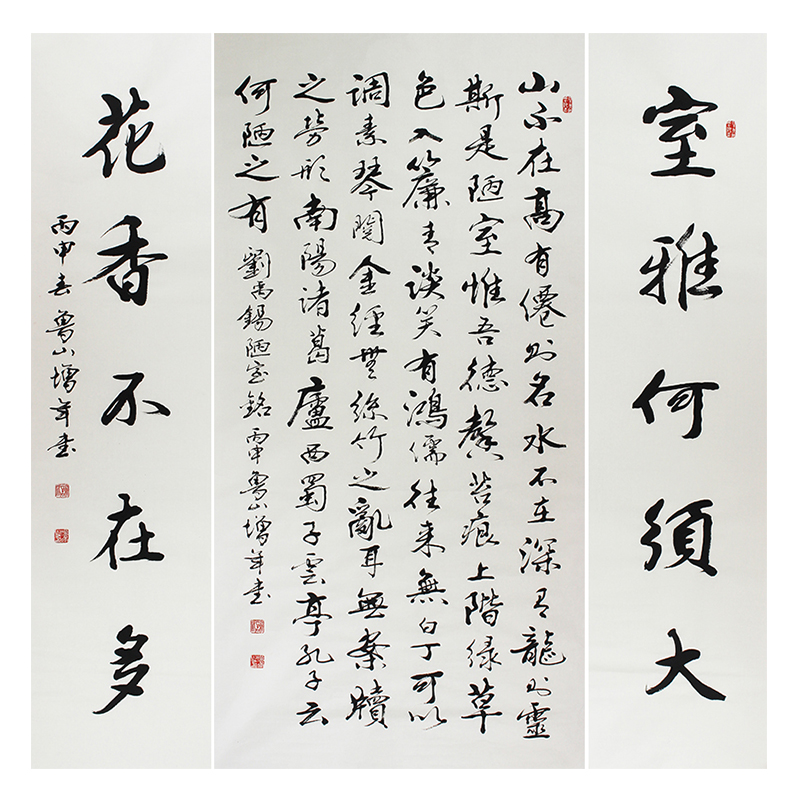 室雅何須大
山不在高有僊則名水不在深有龍則靈
斯是陋室惟吾德馨苔痕上階緑草
色入簾青談笑有鴻儒往來無白丁可以
調素琴閱金經無絲竹之亂耳無案牘
之勞形南陽諸葛廬西蜀子雲亭孔子云
何陋之有 劉禹錫陋室銘 丙申魯山增年書
花香不在多
丙申春魯山增年書